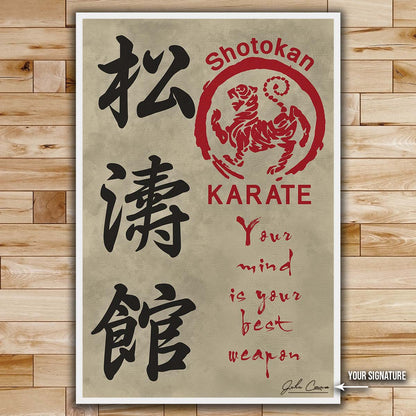 松
濤
館
Shotokan
KARATE
Your
mind
is your
best
weapon
YOUR SIGNATURE